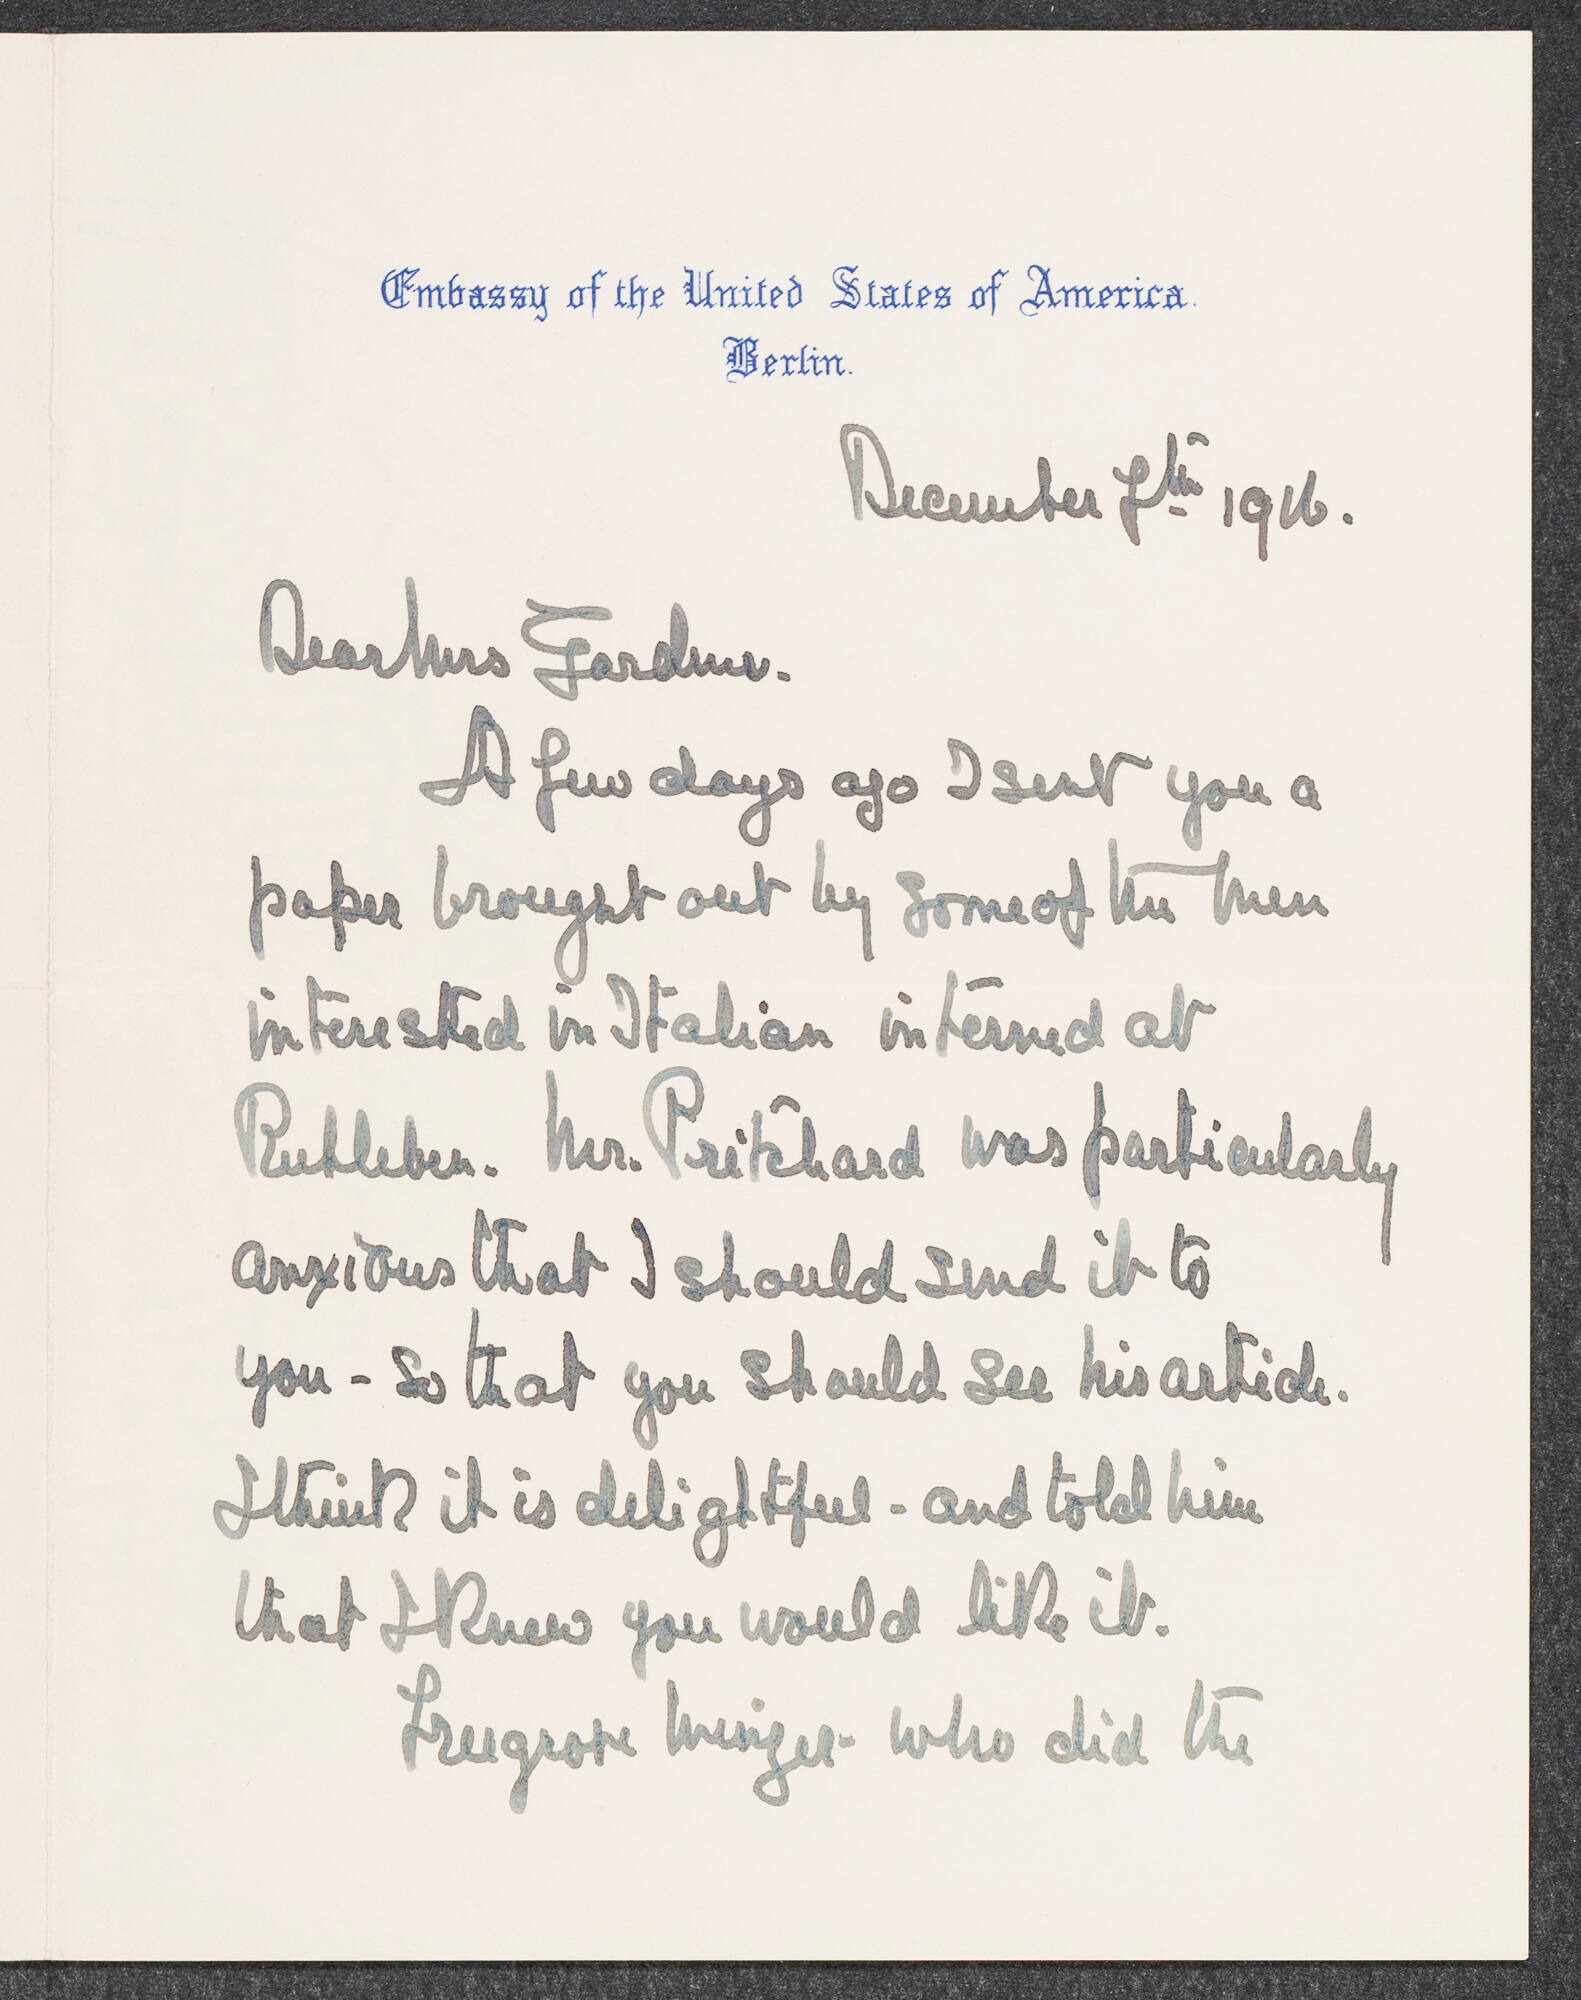 Embassy of the United States of America.
Berlin.
December 7th 1916.
Dear Mrs Gardner.
A few days ago I sent you a
paper brought out by some of the men
interested in Italian interned at
Ruhleben. Mr. Pritchard was particularly
anxious that I should send it to
you - so that you should see his article.
I think it is delightful - and told him
that I knew you would like it.
Freegrove Winzer - who did the